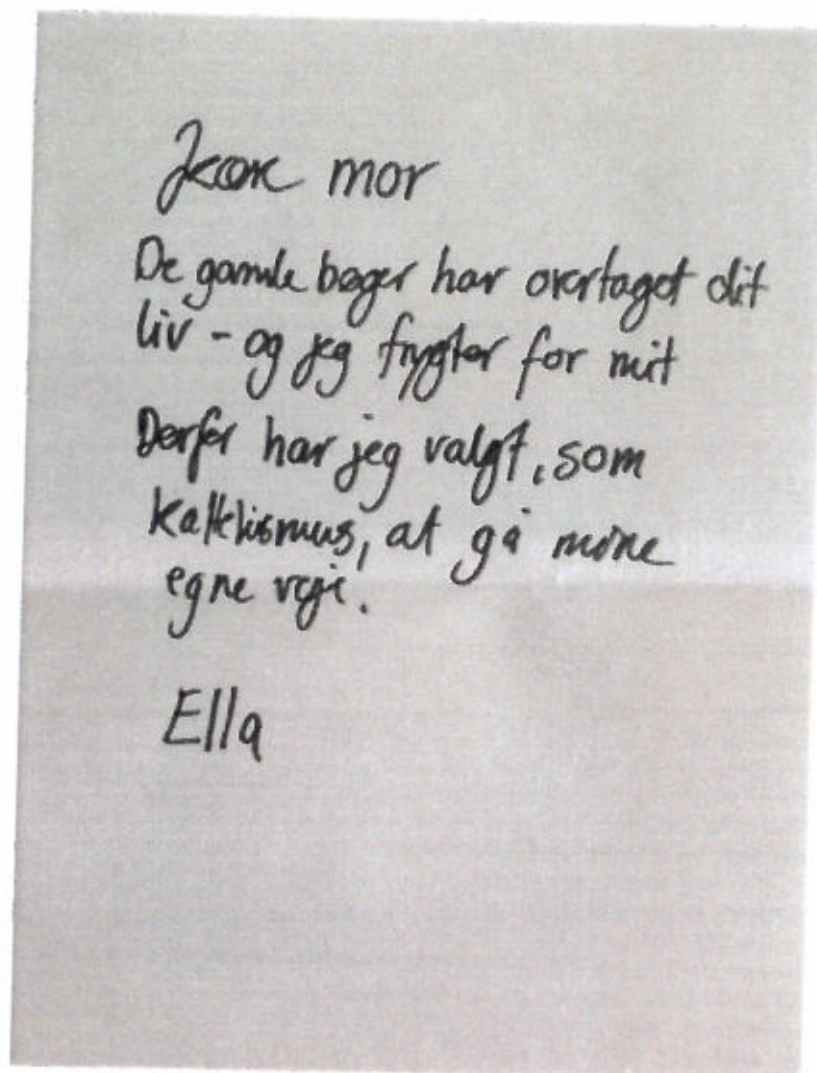 Kære mor
De gamle bøger har overtaget dit
liv - og jeg frygter for mit
Derfor har jeg valgt, som
at gå mine
egne veje.
Ella